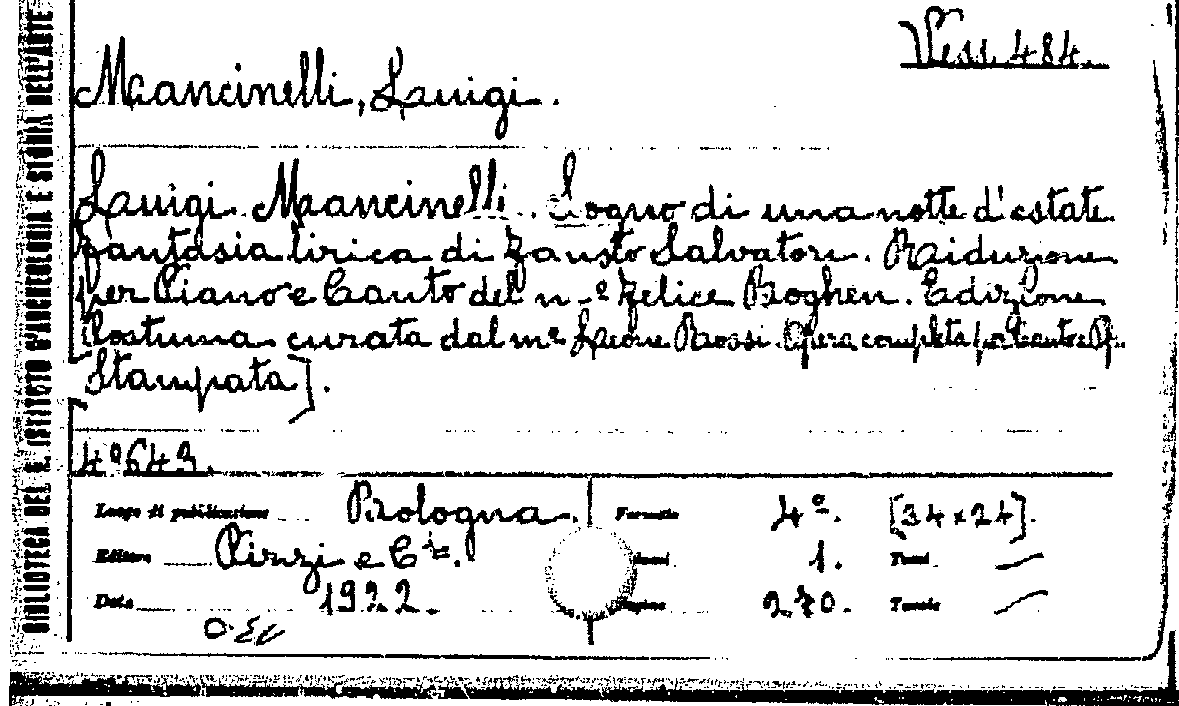 BIBLIOTECA DEL R. ISTITUTO D'ARCHEOLOGIA E STORIA DELL'ARTE
Vess. 484.
Mancinelli, Luigi.
Luigi Mancinelli. Sogno di una notte d'estate
fantasia lirica di Fausto Salvatori. Riduzione
per Piano e Canto del m.º Felice Boghen. Edizione
Postuma curata dal mº Leone Rossi. Opera completa per Canto e Pf.
Stampata].
4º643.
Luogo di pubblicazione Bologna. Formato 4º. [34x24].
Editore Pizzi e Cⁱᵉ. 1. Tomi —
Data 1922. Pagine 270. Tavole —